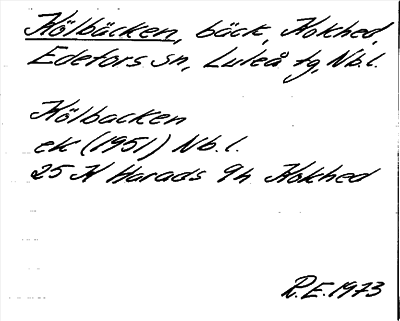 Kölbäcken, bäck, Kokhed,
Edefors sn, Luleå tg, Nb.l.
Kölbacken
ek (1951) Nb.l.
25 K Harads 9h Kokhed
R.E. 1973